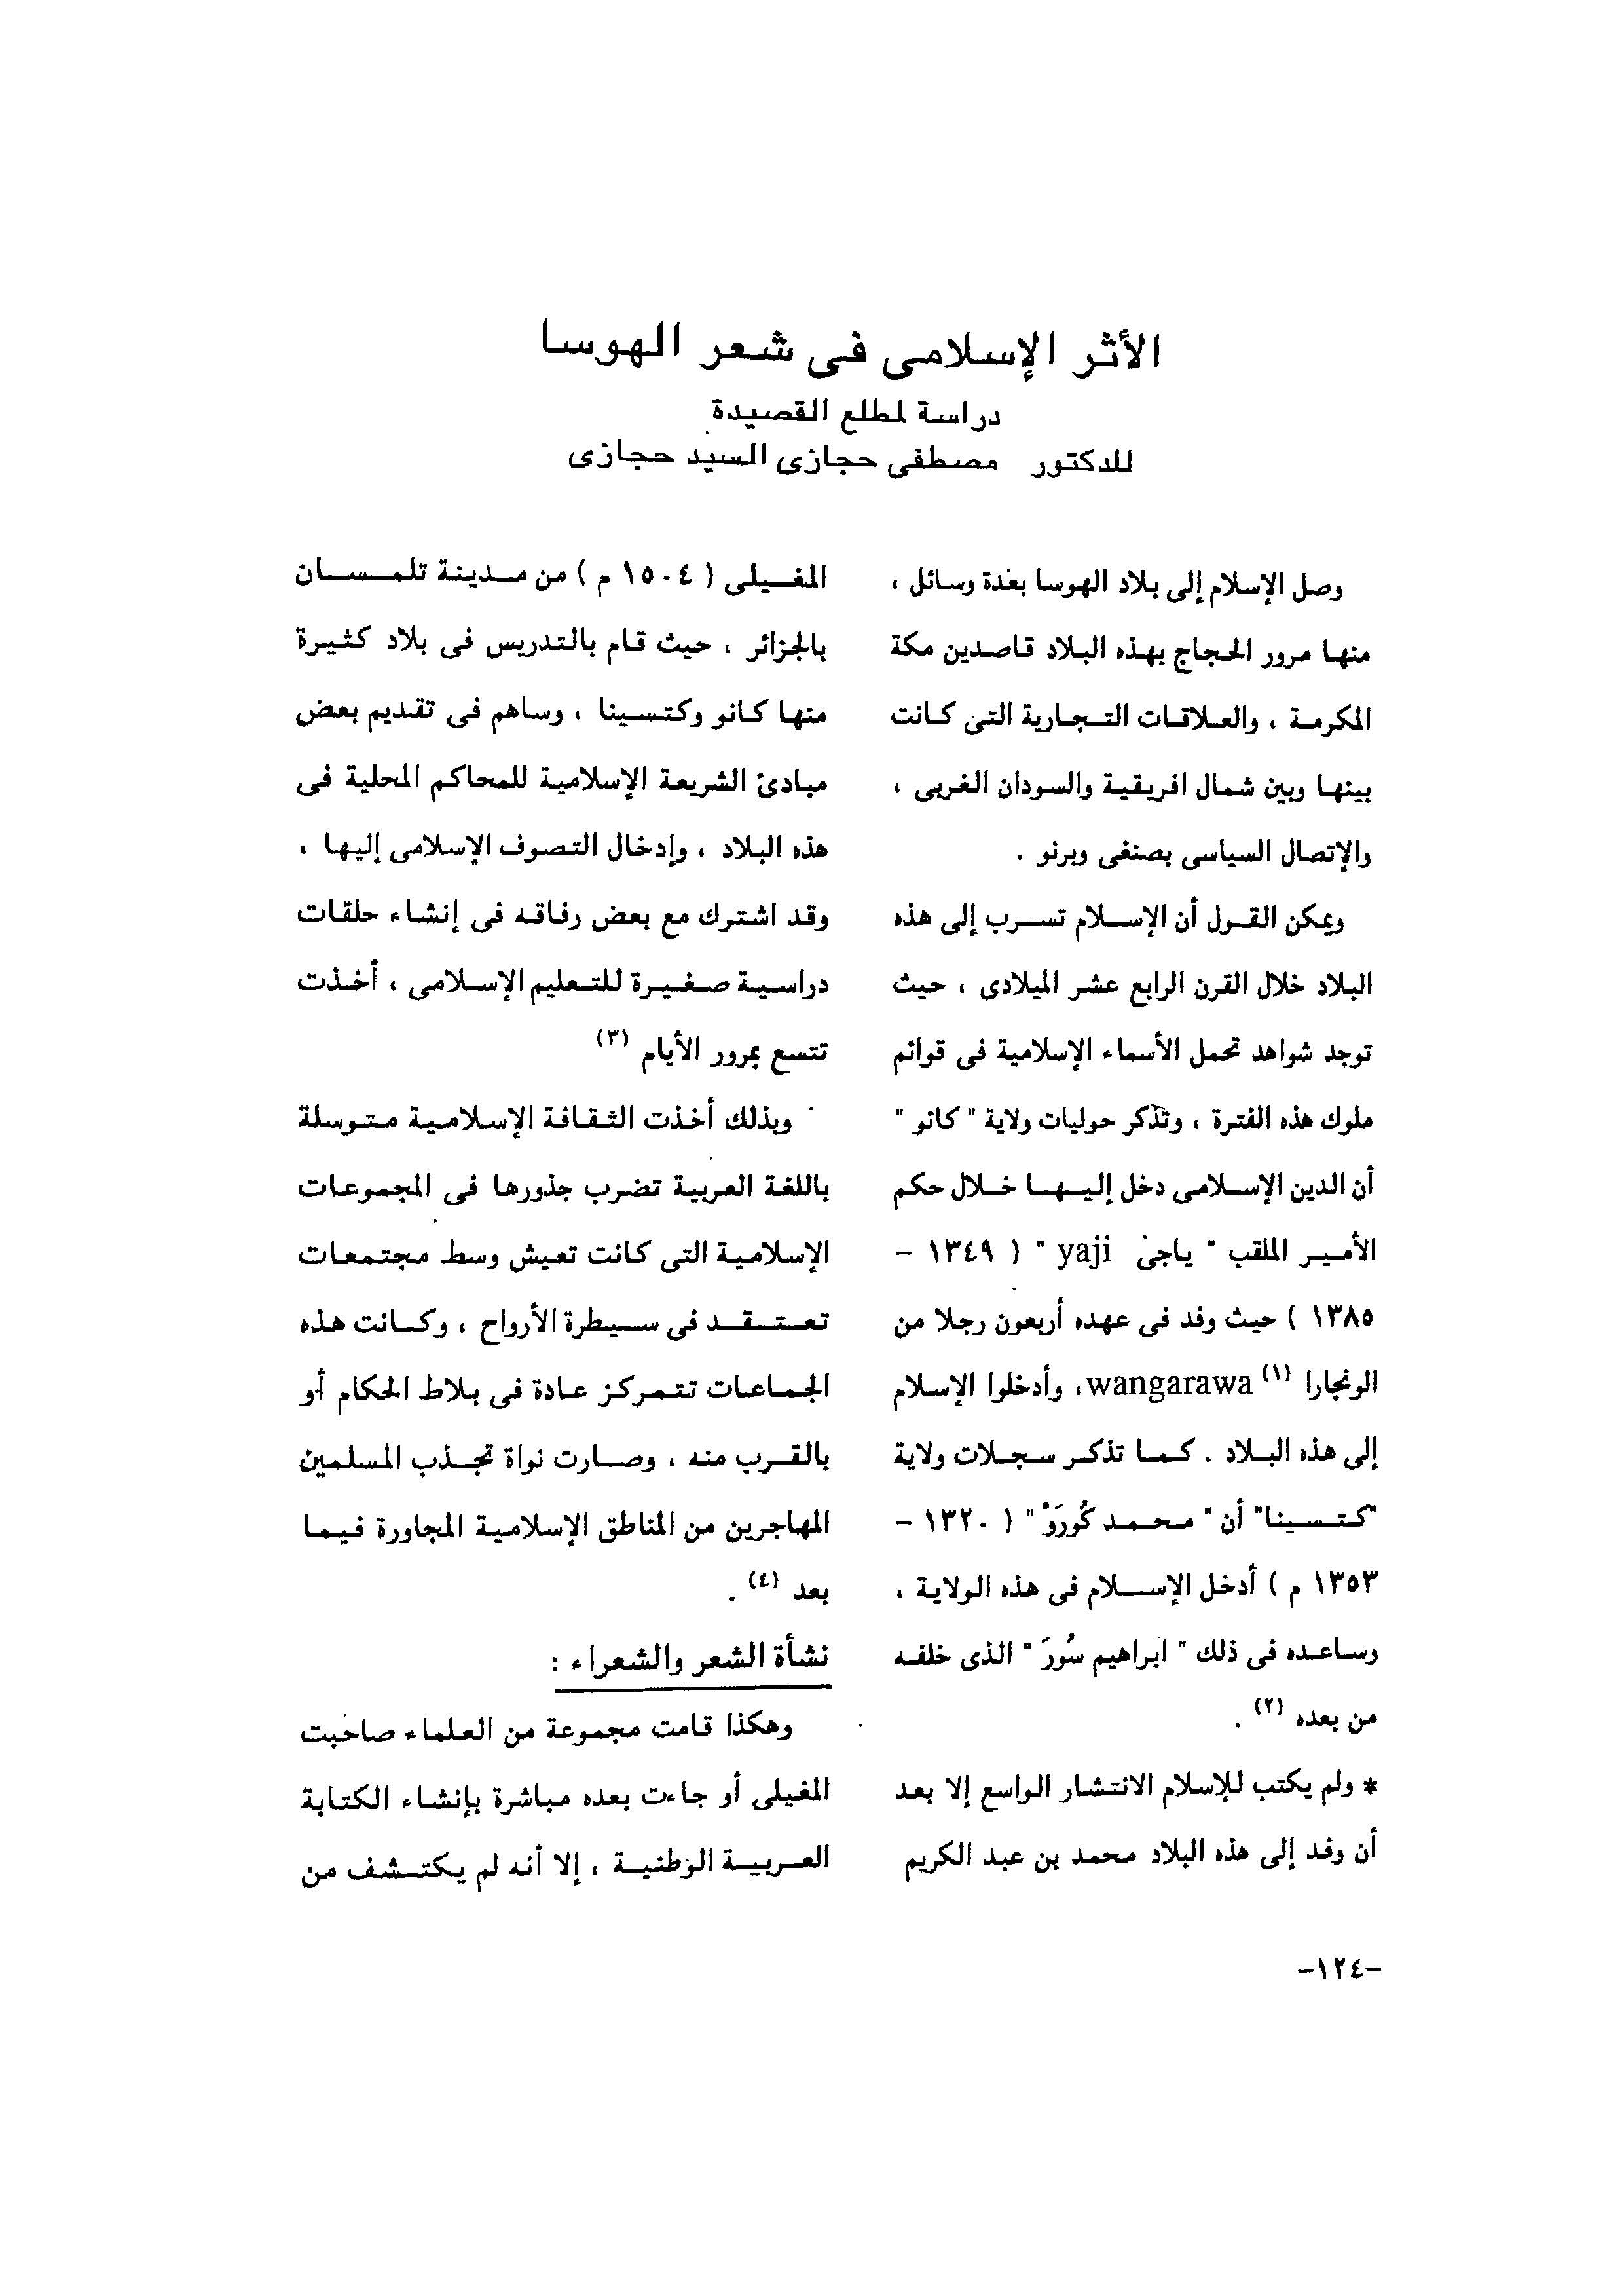 الأثر الإسلامى فى شعر الهوسا
دراسة لمطلع القصيدة
للدكتور مصطفى حجازى السيد حجازى
وصل الإسلام إلى بلاد الهوسا بعدة وسائل ،
منها مرور الحجاج بهذه البلاد قاصدين مكة
المكرمة ، والعلاقات التجارية التى كانت
بينها وبين شمال افريقية والسودان الغربى ،
والإتصال السياسى بصنغى وبرنو .
ويمكن القول أن الإسلام تسرب إلى هذه
البلاد خلال القرن الرابع عشر الميلادى ، حيث
توجد شواهد تحمل الأسماء الإسلامية فى قوائم
ملوك هذه الفترة ، وتذكر حوليات ولاية " كانو "
أن الدين الإسلامى دخل إليها خلال حكم
الأمير الملقب " ياجى yaji " ( ١٣٤٩ -
١٣٨٥ ) حيث وفد فى عهده أربعون رجلا من
الونجارا (١) wangarawa، وأدخلوا الإسلام
إلى هذه البلاد . كما تذكر سجلات ولاية
"كتسينا" أن " محمد كُورَوْ " ( ١٣٢٠ -
١٣٥٣ م ) أدخل الإسلام فى هذه الولاية ،
وساعده فى ذلك " ابراهيم سُورَ " الذى خلفه
من بعده (٢) .
* ولم يكتب للإسلام الانتشار الواسع إلا بعد
أن وفد إلى هذه البلاد محمد بن عبد الكريم
المغيلى ( ١٥٠٤ م ) من مدينة تلمسان
بالجزائر ، حيث قام بالتدريس فى بلاد كثيرة
منها كانو وكتسينا ، وساهم فى تقديم بعض
مبادئ الشريعة الإسلامية للمحاكم المحلية فى
هذه البلاد ، وإدخال التصوف الإسلامى إليها ،
وقد اشترك مع بعض رفاقه فى إنشاء حلقات
دراسية صغيرة للتعليم الإسلامى ، أخذت
تتسع بمرور الأيام (٣)
وبذلك أخذت الثقافة الإسلامية متوسلة
باللغة العربية تضرب جذورها فى المجموعات
الإسلامية التى كانت تعيش وسط مجتمعات
تعتقد فى سيطرة الأرواح ، وكانت هذه
الجماعات تتمركز عادة فى بلاط الحكام أو
بالقرب منه ، وصارت نواة تجذب المسلمين
المهاجرين من المناطق الإسلامية المجاورة فيما
بعد (٤) .
نشأة الشعر والشعراء :
وهكذا قامت مجموعة من العلماء صاحبت
المغيلى أو جاءت بعده مباشرة بإنشاء الكتابة
العربية الوطنية ، إلا أنه لم يكتشف من
-١٢٤-